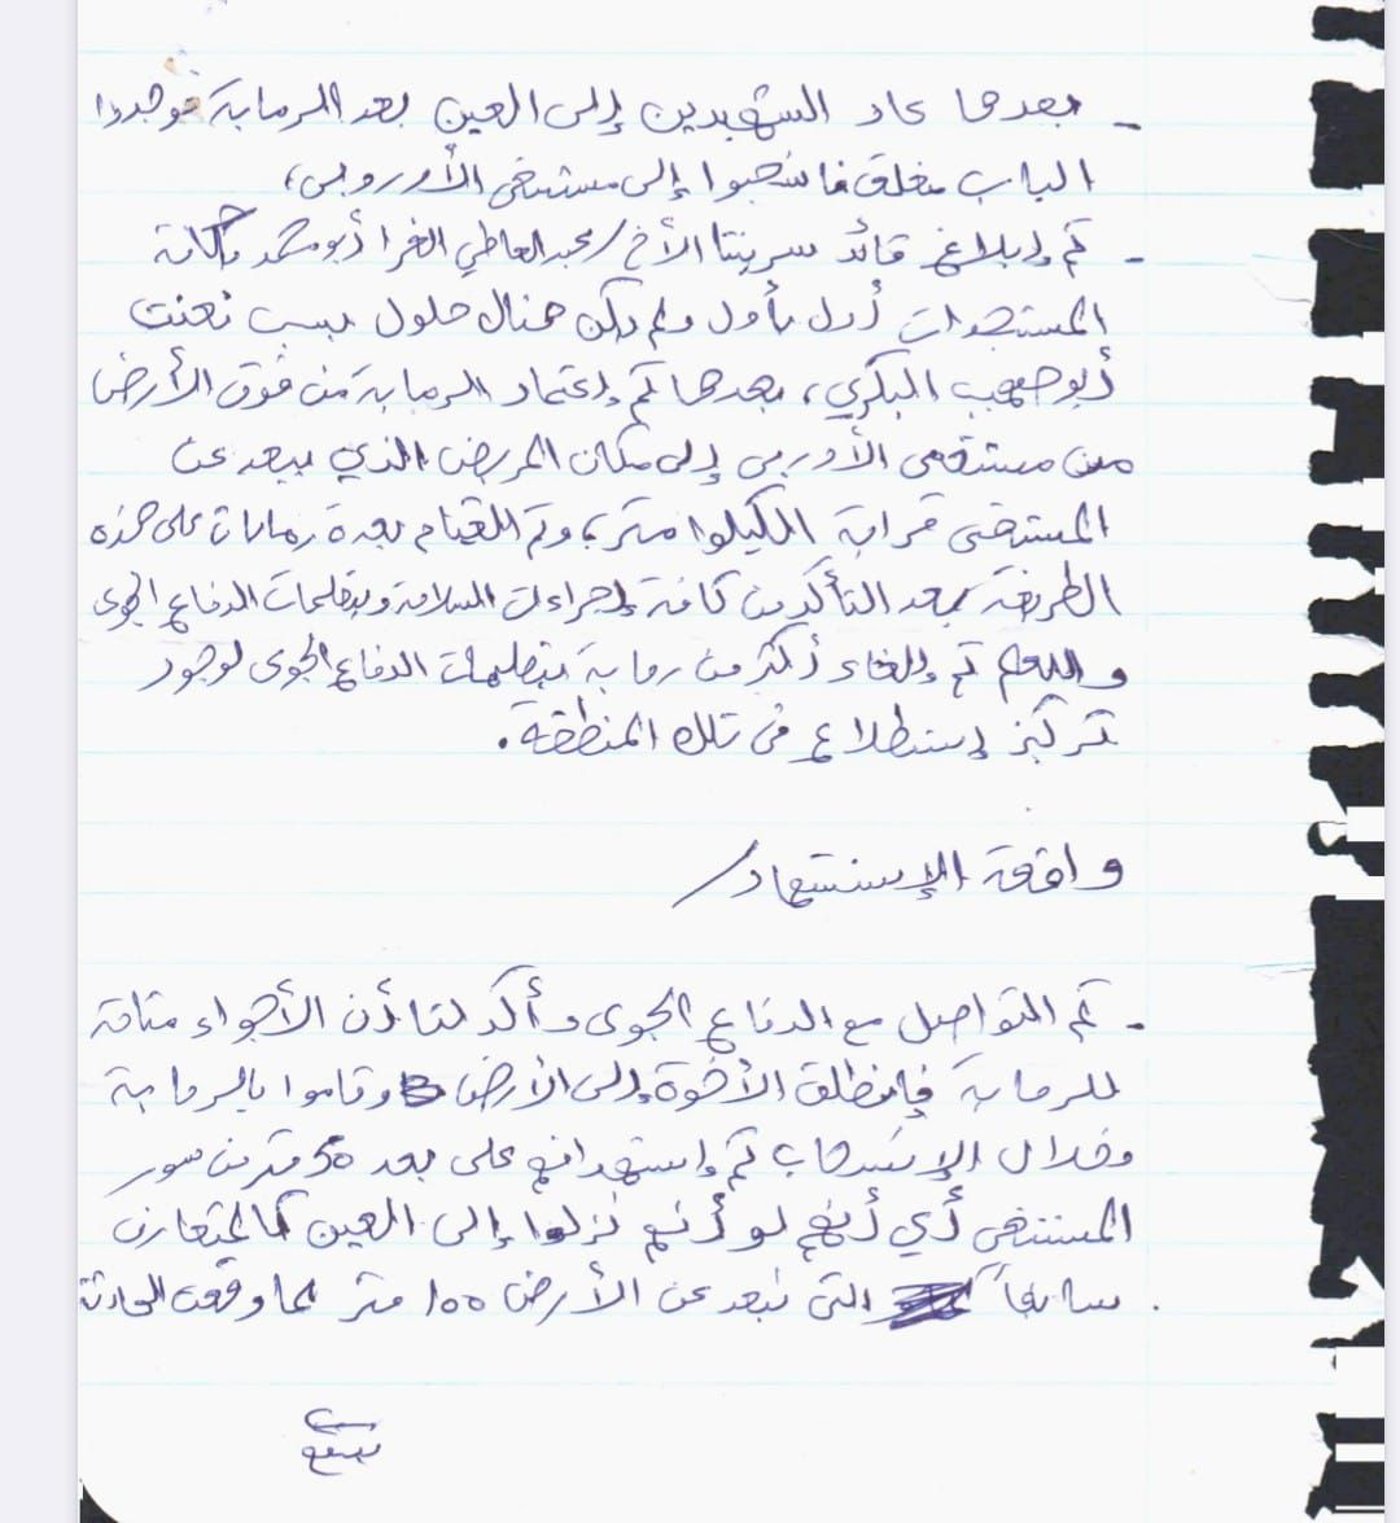 - بعدها عاد الشهيدين إلى العين بعد الرماية فوجدوا
الباب مغلق فانسحبوا إلى مستشفى الأوروبي،
- تم إبلاغ قائد سريتنا الأخ/عبدالعاطي الفرا أبو محمد بكافة
المستجدات أول بأول ولم يكن هنالك حلول بسبب تعنت
أبو صهيب البكري، بعدها تم إعتماد الرماية من فوق الأرض
من مستشفى الأوربي إلى مكان المربض الذي يبعد عن
المستشفى قرابة الكيلوا متر، وتم القيام بعدة رمايات على هذه
الطريقة بعد التأكد من كافة إجراءات السلامة وبتعليمات الدفاع الجوي
و تم إلغاء أكثر من رماية بتعليمات الدفاع الجوي لوجود
تركيز إستطلاع في تلك المنطقة.
واقعة الإستشهاد/
- تم التواصل مع الدفاع الجوي وأكد لنا أن الأجواء متاحة
للرماية فإنطلق الأخوة إلى الأرض وقاموا بالرماية
وخلال الإنسحاب تم إستهدافهم على بعد 50 متر من سور
المستشفى أي أنهم لو أنهم نزلوا إلى العين كالمتعارف
سابقاً التي تبعد عن الأرض 100 متر لما وقعت الحادثة
يتبع